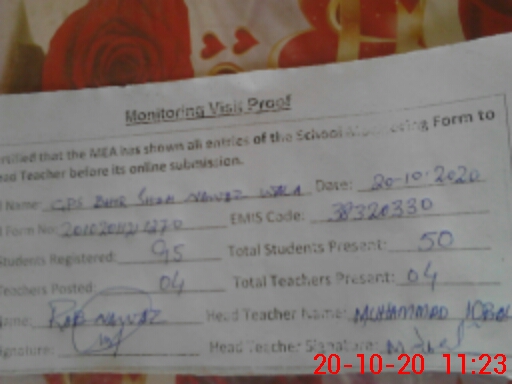 Monitoring Visit Proof
rtified that the MEA has shown all entries of the School Monitoring Form to
ead Teacher before its online submission.
l Name: GPS Shah Nawaz Wala Date: 20-10-2020
l Form No: EMIS Code: 38320330
Students Registered: 95 Total Students Present: 50
Teachers Posted: 04 Total Teachers Present: 04
Name: RAB NAWAZ Head Teacher Name: MUHAMMAD IQBAL
ignature: Head Teacher Signature:
20-10-20 11:23